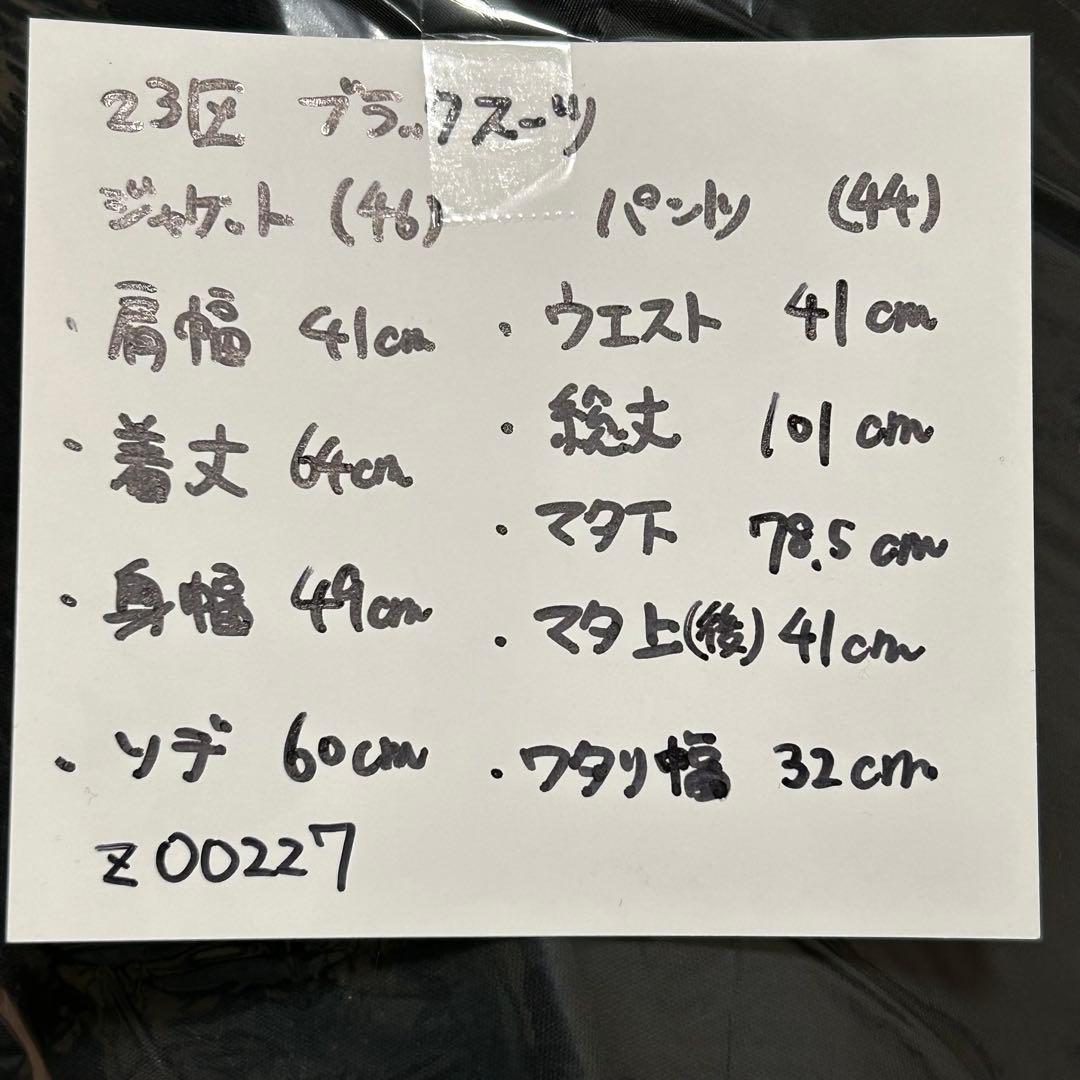 23区 ブラックスーツ
ジャケット (46) パンツ (44)
・肩幅 41cm ・ウエスト 41cm
・着丈 64cm ・総丈 101cm
・身幅 49cm ・マタ下 78.5cm
・ソデ 60cm ・マタ上(後) 41cm
・ワタリ幅 32cm
z00227